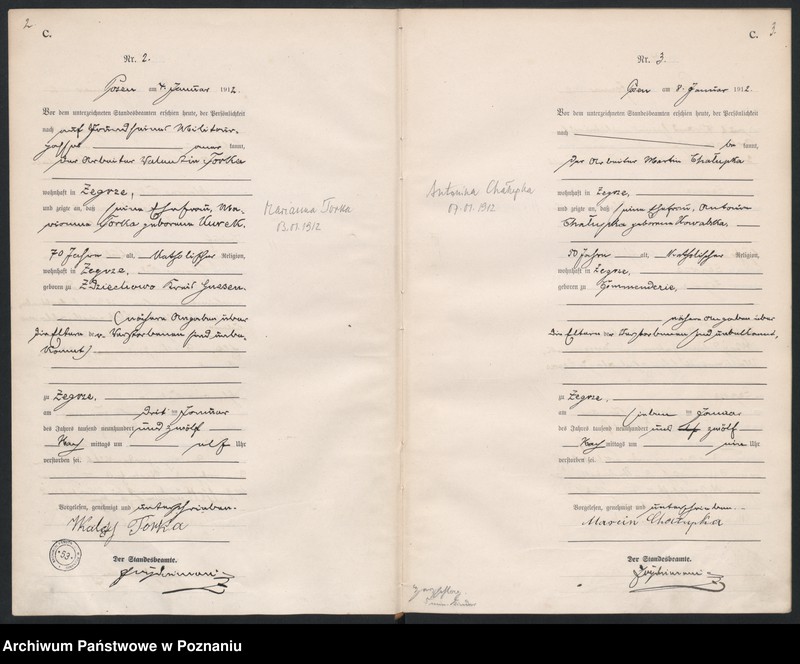 2
C.
Nr. 2.
Posen am 4. Januar 1912.
Vor dem unterzeichneten Standesbeamten erschien heute, der Persönlichkeit
nach auf Grund seines Militär-
passes aner kannt,
der Arbeiter Valentin Torka
wohnhaft in Zegrze,
und zeigte an, daß seine Ehefrau, Ma-
rianna Torka geborene Kurek,
70 Jahre alt, katholischer Religion,
wohnhaft in Zegrze,
geboren zu Zdziechowo Kreis Gnesen.
(nähere Angaben über
die Eltern der Verstorbenen sind unbe-
kannt)
zu Zegrze,
am drit ten Januar
des Jahres tausend neunhundert und zwölf
Nach mittags um elf Uhr
verstorben sei.
Vorgelesen, genehmigt und unterschrieben.
Torka
Der Standesbeamte.
Marianna Torka
03.01.1912
53
3
C.
Nr. 3.
Posen am 8. Januar 1912.
Vor dem unterzeichneten Standesbeamten erschien heute, der Persönlichkeit
nach
be kannt,
der Arbeiter Martin Chałupka
wohnhaft in Zegrze,
und zeigte an, daß seine Ehefrau, Antonina
Chałupka geborene Kowalska,
50 Jahre alt, katholischer Religion,
wohnhaft in Zegrze,
geboren zu Kommenderie,
nähere Angaben über
die Eltern der Verstorbenen sind unbekannt,
zu Zegrze,
am sieben ten Januar
des Jahres tausend neunhundert und zwölf
Nach mittags um ein Uhr
verstorben sei.
Vorgelesen, genehmigt und unterschrieben.
Marcin Chałupka
Der Standesbeamte.
Antonina Chałupka
07.01.1912
Archiwum Państwowe w Poznaniu